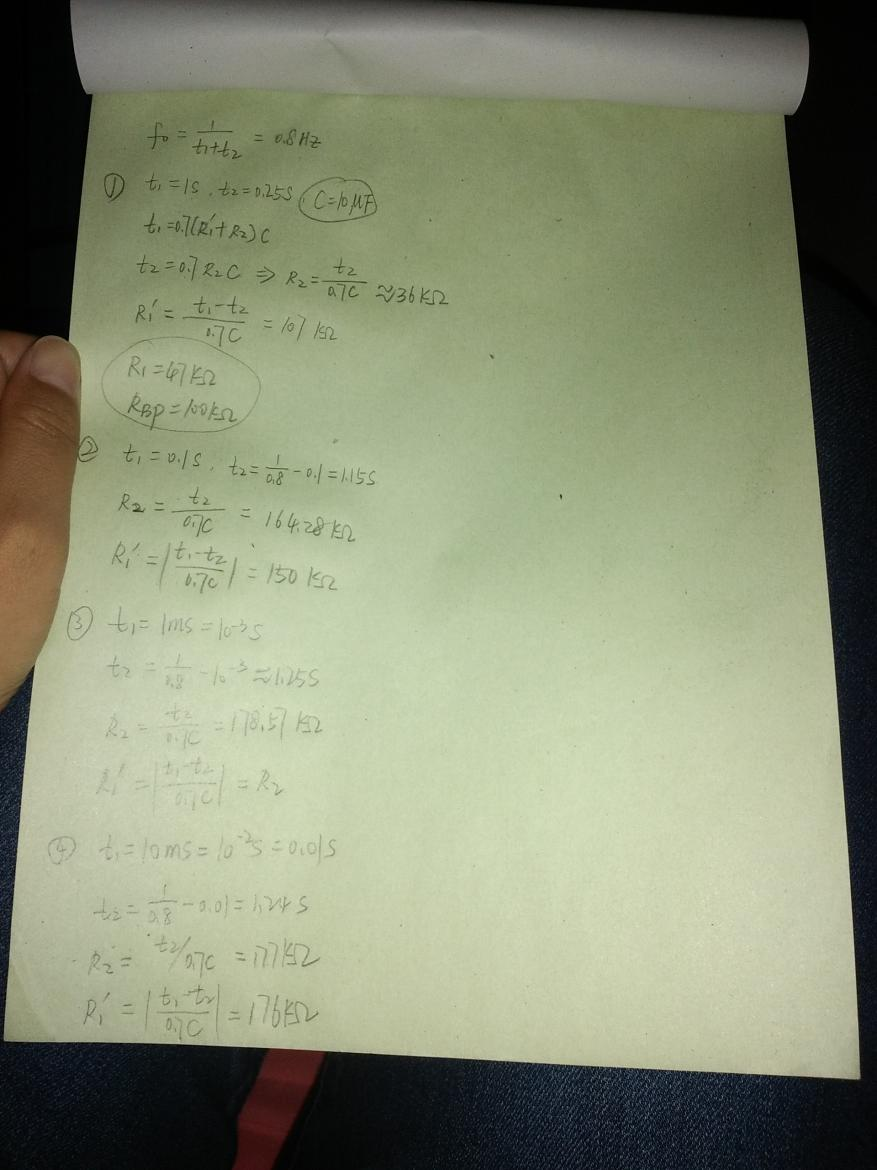 f₀ = 1/(t₁+t₂) = 0.8Hz
① t₁ = 1S, t₂ = 0.25S, C=10μF
t₁ = 0.7(R₁'+R₂)C
t₂ = 0.7R₂C ⇒ R₂ = t₂/0.7C ≈ 36kΩ
R₁' = (t₁-t₂)/0.7C = 107 kΩ
R₁ = 47 kΩ
RBP = 100kΩ
② t₁ = 0.1S, t₂ = 1/0.8 - 0.1 = 1.15S
R₂ = t₂/0.7C = 164.28 kΩ
R₁' = |(t₁-t₂)/0.7C| = 150 kΩ
③ t₁ = 1ms = 10⁻³S
t₂ = 1/0.8 - 10⁻³ ≈ 1.25S
R₂ = t₂/0.7C = 178.57 kΩ
R₁' = |(t₁-t₂)/0.7C| = R₂
④ t₁ = 10ms = 10⁻²S = 0.01S
t₂ = 1/0.8 - 0.01 = 1.24S
R₂ = t₂/0.7C = 177kΩ
R₁' = |(t₁-t₂)/0.7C| = 176kΩ